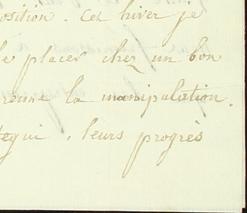 position. Cet hiver je
placer chez un bon
la manipulation.
leurs progrès